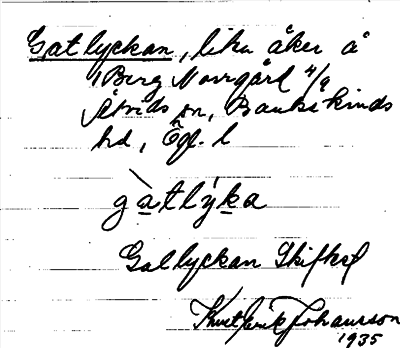 Gatlyckan, liten åker å
Berg Norrgård 4/9
Åtvids sn, Bankekinds
hd, Ögl. l
gàtlýka
Gatlyckan Skifksf
Knut Erik Johansson
1935